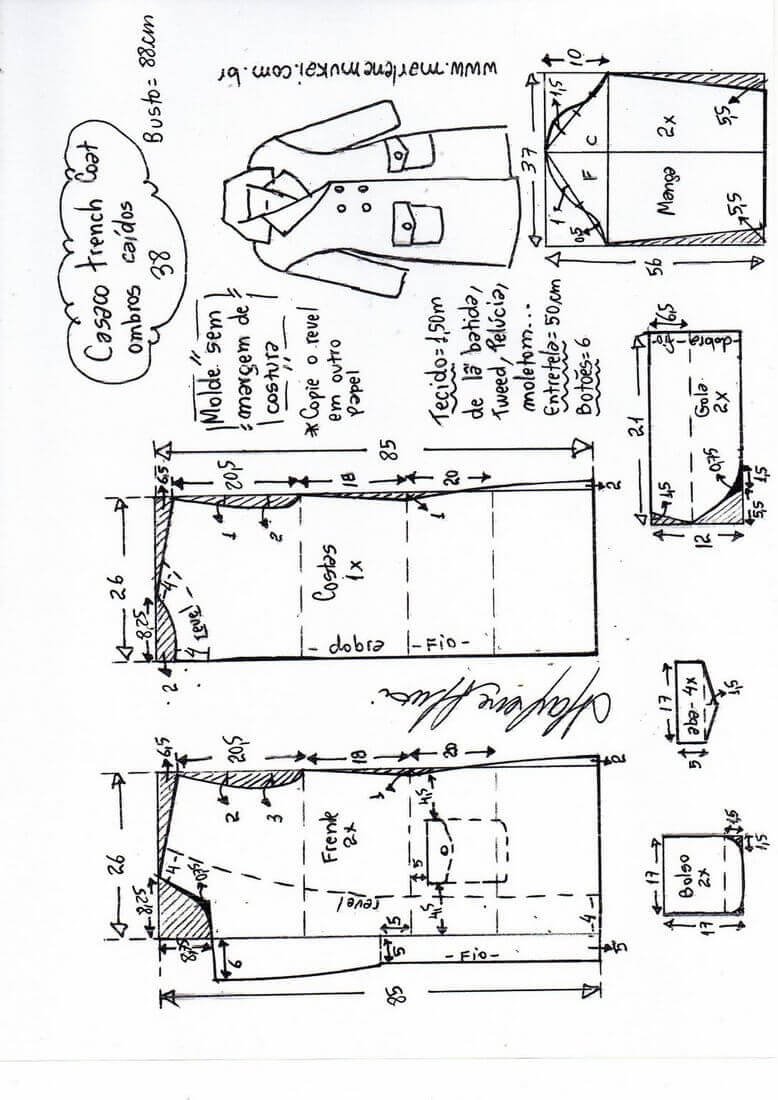 Casaco trench Coat
ombros caídos
38
Busto= 88cm
www.marlenemukai.com.br
"Molde sem
margem de
costura"
*Copie o revel
em outro
papel
Tecido=1,50m
de lã batida,
Tweed, Pelúcia,
moletom...
Entretela=50cm
Botões=6
10
1,5
37
C
F
1
0,5
Manga
2x
5,5
5,5
56
85
6,5
20,5
18
20
2
26
1
2
1
8,25
4
4
revel
2
Costas
1x
- dobra -
- Fio -
21
6,5
Fio
dobra
Gola
2x
4,5
0,75
1,5
5,5
12
6,5
20,5
18
20
2
26
2
3
1
8,25
4
8,75
6
Frente
2x
revel
4,5
5
4,5
5
5
- Fio -
4
5
85
17
aba-4x
5
1,5
17
Bolso
2x
17
1,5
1,5